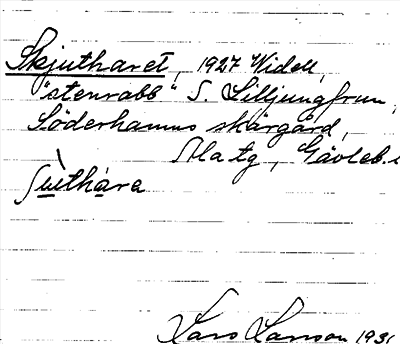 Skjutharet, 1927 Widell,
"stenrabb" S. Lilljungfrun,
Söderhamns skärgård,
Ala tg, Gävleb. l
ʃùthara
Lars Larsson 1931